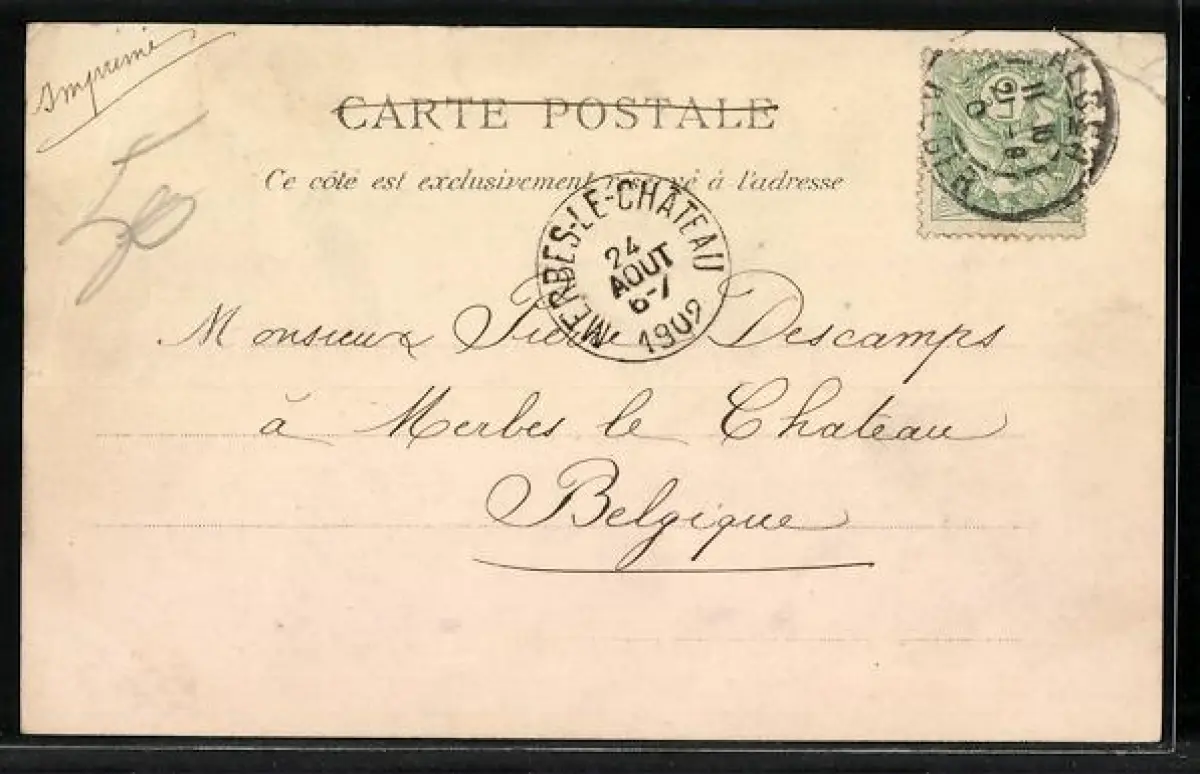 Imprimé
CARTE POSTALE
Ce côté est exclusivement réservé à l'adresse
50
ALGER
ALGER
MERBES-LE-CHÂTEAU
24
AOUT
6-7
1902
Monsieur Pierre Descamps
à Merbes le Chateau
Belgique